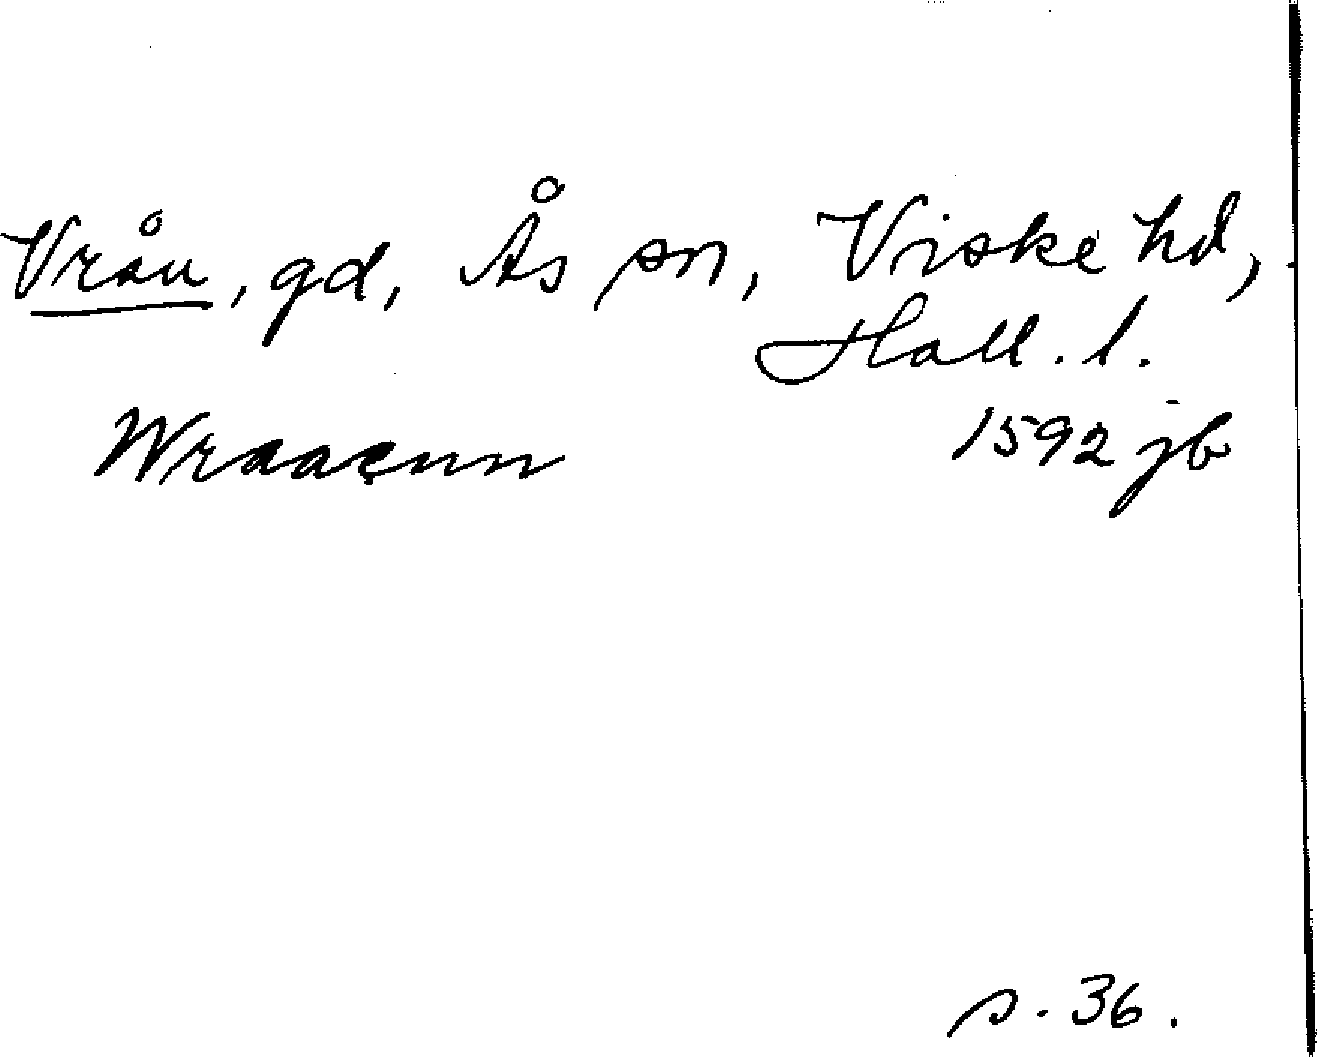 Vrån, gd, Ås sn, Viske hd,
Hall. l.
Wraaenn 1592 jb
s. 36.